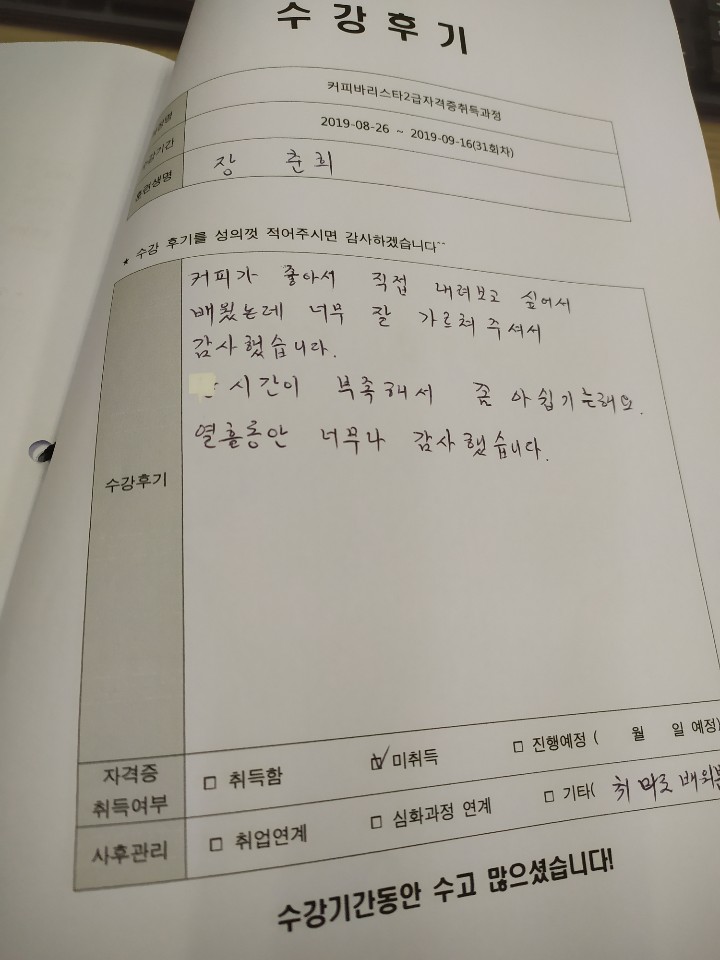 수강후기
커피바리스타2급자격증취득과정
2019-08-26 ~ 2019-09-16(31회차)
훈련생명 장 춘희
★ 수강 후기를 성의껏 적어주시면 감사하겠습니다~~
커피가 좋아서 직접 내려보고 싶어서
배웠는데 너무 잘 가르쳐 주셔서
감사했습니다.
시간이 부족해서 좀 아쉽기는해요.
열흘동안 너무나 감사했습니다.
수강후기
자격증
취득여부
□ 취득함 ☑ 미취득 □ 진행예정 ( 월 일 예정)
사후관리 □ 취업연계 □ 심화과정 연계 □ 기타(
수강기간동안 수고 많으셨습니다!